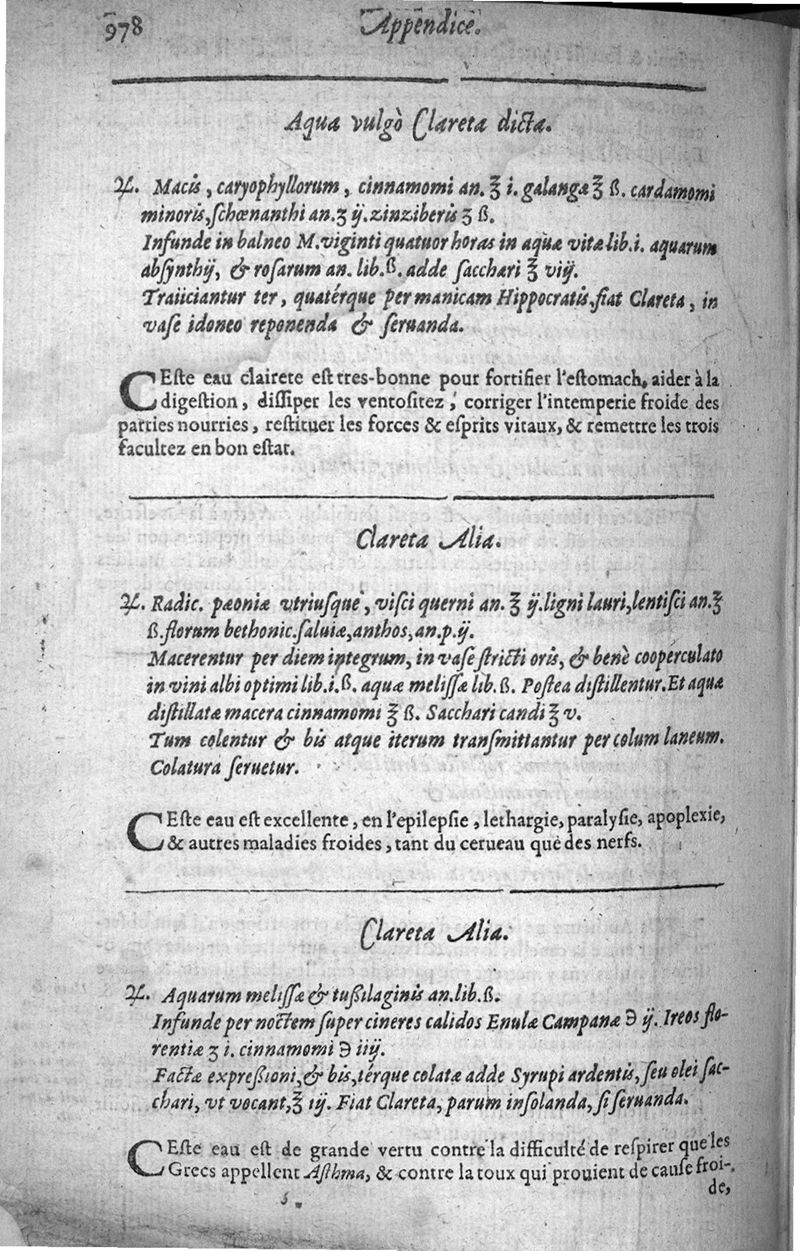 978 Appendice.
Aqua vulgò Clareta dicta.
♃. Macis, caryophyllorum, cinnamomi an. ℥ i. galangæ ℥ ß. cardamomi
minoris, ſchœnanthi an. ʒ ij. zinziberis ʒ ß.
Infunde in balneo M. viginti quatuor horas in aquæ vitæ lib. i. aquarum
abſynthij, & roſarum an. lib. ß. adde ſacchari ℥ viij.
Traiiciantur ter, quatérque per manicam Hippocratis, fiat Clareta, in
vaſe idoneo reponenda & ſeruanda.
CEſte eau clairete est tres-bonne pour fortifier l'eſtomach, aider à la
digeſtion, diſſiper les ventoſitez, corriger l'intemperie froide des
parties nourries, reſtituer les forces & eſprits vitaux, & remettre les trois
facultez en bon eſtat.
Clareta Alia.
♃. Radic. pæoniæ vtriuſque, viſci querni an. ℥ ij. ligni lauri, lentiſci an. ℥
ß. florum bethonic. ſaluiæ, anthos, an. p. ij.
Macerentur per diem integrum, in vaſe ſtricti oris, & benè cooperculato
in vini albi optimi lib. i. ß. aquæ meliſſæ lib. ß. Poſtea diſtillentur. Et aquæ
diſtillatæ macera cinnamomi ℥ ß. Sacchari candi ℥ v.
Tum colentur & bis atque iterum tranſmittantur per colum laneum.
Colatura ſeruetur.
CEſte eau est excellente, en l'epilepſie, lethargie, paralyſie, apoplexie,
& autres maladies froides, tant du cerueau que des nerfs.
Clareta Alia.
♃. Aquarum meliſſæ & tußilaginis an. lib. ß.
Infunde per noctem ſuper cineres calidos Enulæ Campanæ ℈ ij. Ireos flo-
rentiæ ʒ i. cinnamomi ℈ iiij.
Factæ expreßioni, & bis, térque colatæ adde Syrupi ardentis, ſeu olei ſac-
chari, vt vocant, ℥ iij. Fiat Clareta, parum inſolanda, ſi ſeruanda.
CEſte eau est de grande vertu contre la difficulté de reſpirer que les
Grecs appellent Aſthma, & contre la toux qui prouient de cauſe froi-
de,